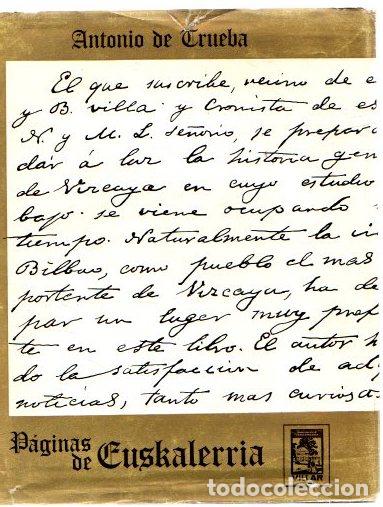 Antonio de Trueba
El que suscribe, vecino de e
y B. villa y Cronista de es
N. y M. L. señorio, se prepara
dár á luz la historia gen
de Vizcaya en cuyo estudio
bajo se viene ocupando
tiempo. Naturalmente la in
Bilbao, como pueblo el mas
portente de Vizcaya, ha de
par un lugar muy pref
te en este libro. El autor h
do la satisfaccion de ad
noticias, tanto mas curiosas
Páginas
de Euskalerria
VILLAR
todocoleccion.net